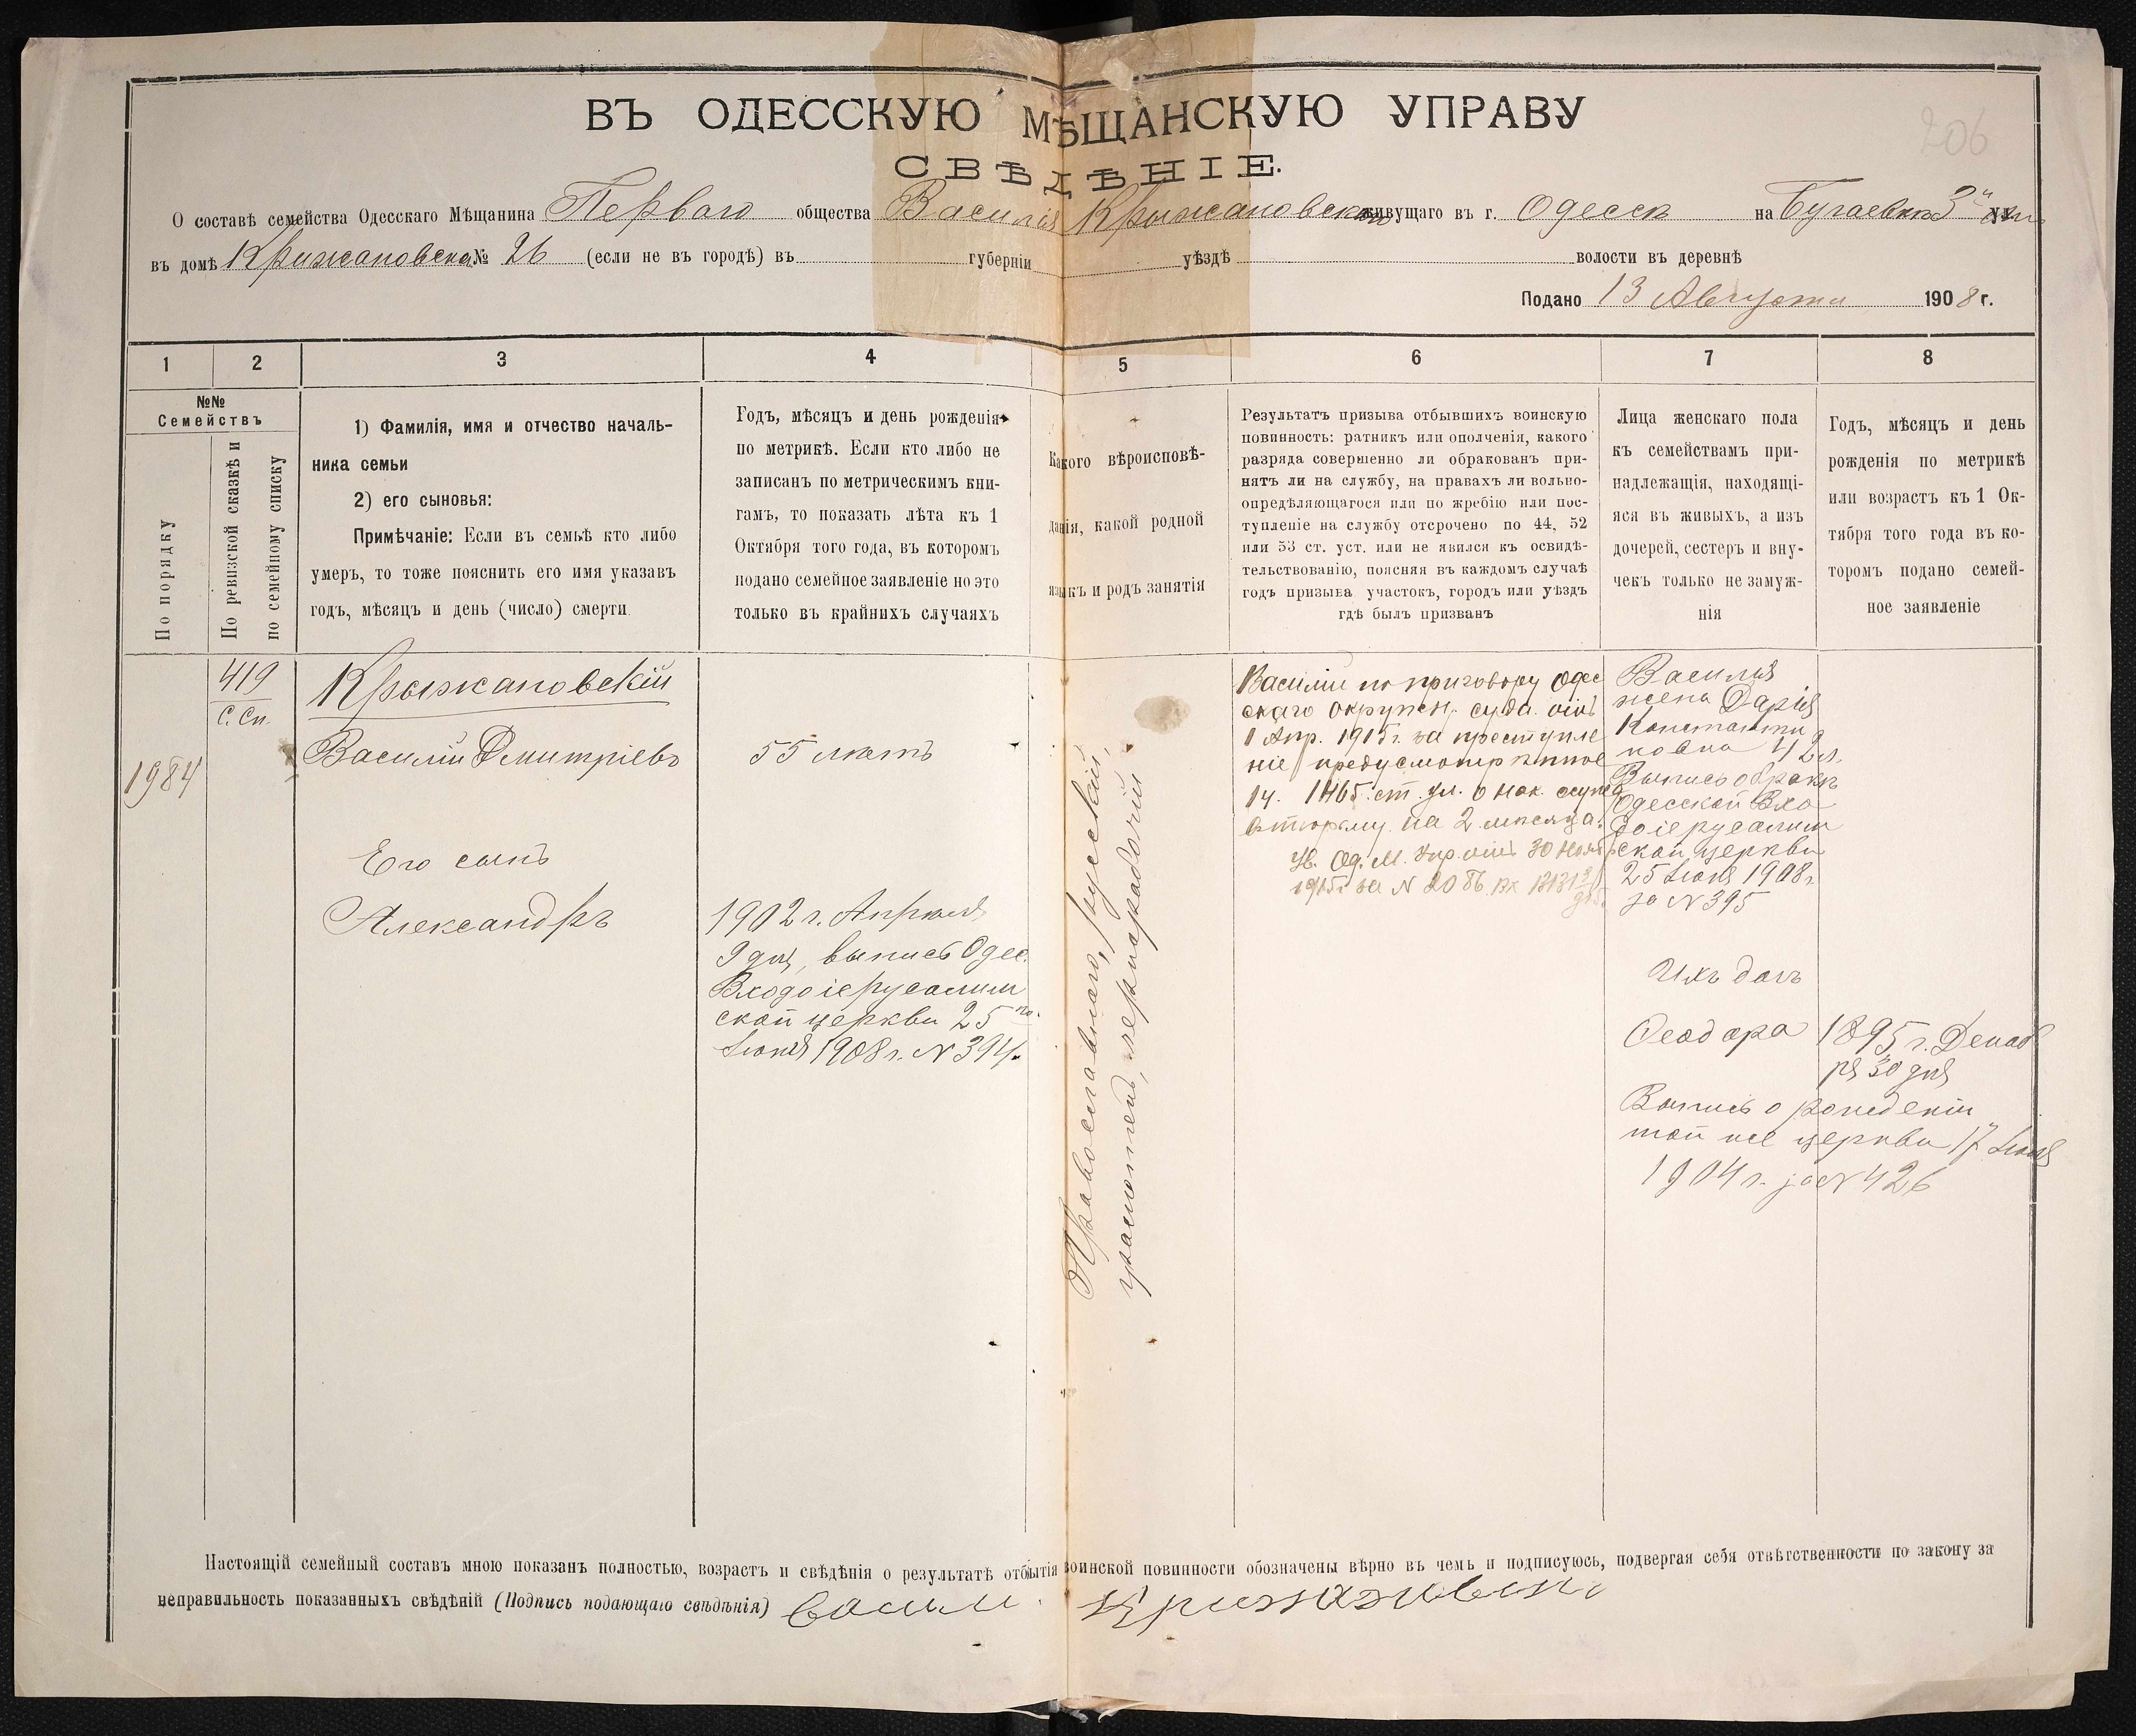 206
ВЪ ОДЕССКУЮ МѢЩАНСКУЮ УПРАВУ
СВѢДѢНІЕ.
О составѣ семейства Одесскаго Мѣщанина Перваго общества Василія Крыжановскаго живущаго въ г. Одессѣ на Бугаевкѣ 3й
въ домѣ Крижановска № 26 (если не въ городѣ) въ губерніи уѣздѣ волости въ деревнѣ
Подано 13 Августа 1908 г.
1 2 3 4 5 6 7 8
№№
Семействъ
По порядку
По ревизской сказкѣ и
по семейному списку
1) Фамилія, имя и отчество началь-
ника семьи
2) его сыновья:
Примѣчаніе: Если въ семьѣ кто либо
умеръ, то тоже пояснить его имя указавъ
годъ, мѣсяцъ и день (число) смерти.
Годъ, мѣсяцъ и день рожденія
по метрикѣ. Если кто либо не
записанъ по метрическимъ кни-
гамъ, то показать лѣта къ 1
Октября того года, въ которомъ
подано семейное заявленіе но это
только въ крайнихъ случаяхъ
Какого вѣроисповѣ-
данія, какой родной
языкъ и родъ занятія
Результатъ призыва отбывшихъ воинскую
повинность: ратникъ или ополченія, какого
разряда совершенно ли обракованъ при-
нятъ ли на службу, на правахъ ли вольно-
опредѣляющагося или по жребію или пос-
тупленіе на службу отсрочено по 44, 52
или 53 ст. уст. или не явился къ освидѣ-
тельствованію, поясняя въ каждомъ случаѣ
годъ призыва участокъ, городъ или уѣздъ
гдѣ былъ призванъ
Лица женскаго пола
къ семействамъ при-
надлежащія, находящі-
яся въ живыхъ, а изъ
дочерей, сестеръ и вну-
чекъ только не замуж-
нія
Годъ, мѣсяцъ и день
рожденія по метрикѣ
или возрастъ къ 1 Ок-
тября того года въ ко-
торомъ подано семей-
ное заявленіе
1984
419
С. Сп.
Крыжановскій
Василій Дмитріевъ
Его сынъ
Александръ
55 лѣтъ
1902 г. Апрѣля
9 дня, выпись Одес.
Входоіерусалим
ской церкви 25го
Іюня 1908 г. № 394.
Православнаго, русскій,
грамотенъ, чернорабочій
Василій по приговору Одес
скаго окружн. суда отъ
1 Апр. 1915 г. за преступле
ніе предусмотрѣнное
1ч. 1465 ст. ул. о нак.
въ тюрьму на 2 мѣсяца.
Ув. Од. М. Упр. отъ 30 Нояб
1915 г за № 2086 вх
Василія
жена Дарія
Константи
новна 42 л.
Выпись о бракѣ
Одесской Вхо
доіерусалим
ской церкви
25 Іюня 1908 г
за № 395
Ихъ дочь
Ѳеодора 1895 г. Декаб
ря 30 дня
Выпись о рожденіи
той же церкви 17 Іюня
1904 г. за № 426
Настоящій семейный составъ мною показанъ полностью, возрастъ и свѣдѣнія о результатѣ отбытія воинской повинности обозначены вѣрно въ чемъ и подписуюсь, подвергая себя отвѣтственности по закону за
неправильность показанныхъ свѣдѣній (Подпись подающаго свѣдѣнія) Васили Крижановски